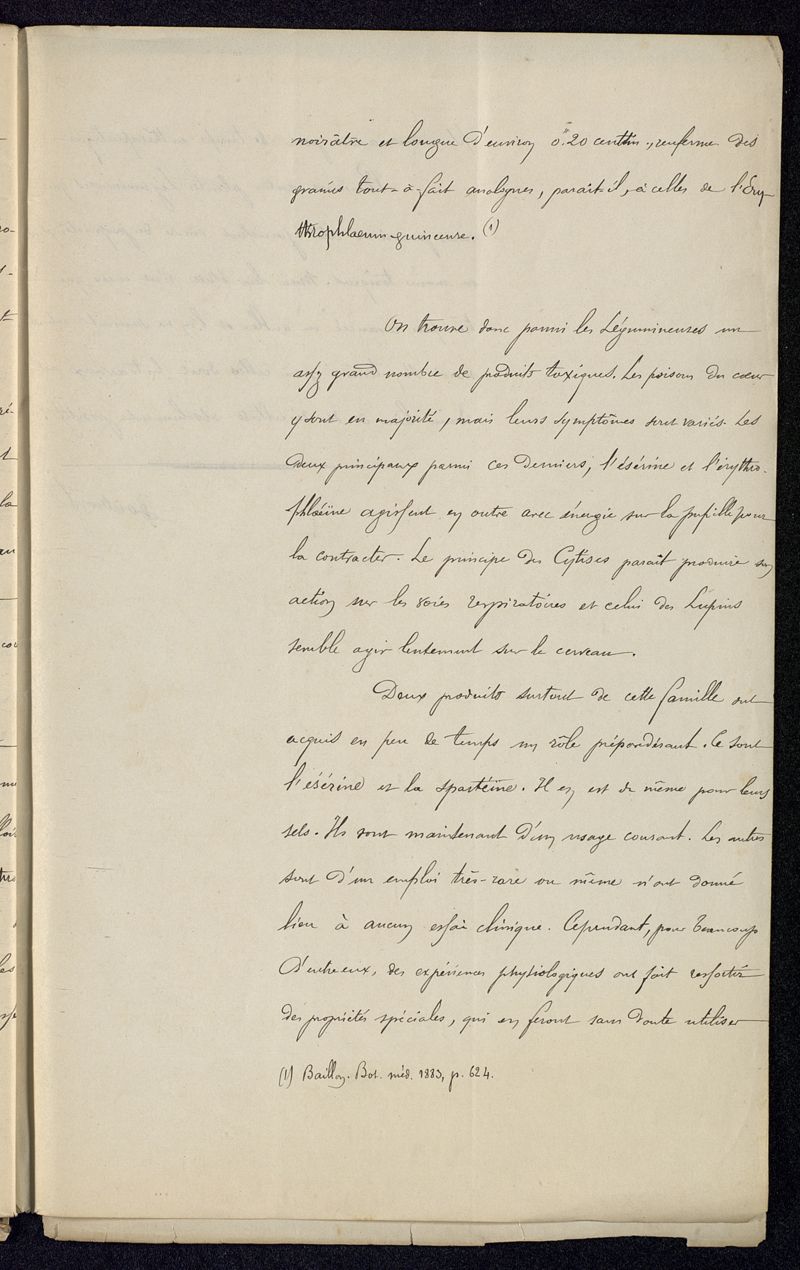 noirâtre et longue d'environ 0m.20 centim., renferme des
graines tout-à-fait analogues, paraît-il, à celles de l'Ery-
throphlaeum guineense. (1)
On trouve donc parmi les Légumineuses un
assez grand nombre de produits toxiques. Les poisons du cœur
y sont en majorité, mais leurs symptômes sont variés. Les
deux principaux parmi ces derniers, l'ésérine et l'érythro-
phlæine agissent en outre avec énergie sur la pupille pour
la contracter. Le principe des Cytises paraît produire son
action sur les voies respiratoires et celui des Lupins
semble agir lentement sur le cerveau.
Deux produits surtout de cette famille ont
acquis en peu de temps un rôle prépondérant. Ce sont
l'ésérine et la spartéine. Il en est de même pour leurs
sels. Ils sont maintenant d'un usage courant. Les autres
sont d'un emploi très-rare ou même n'ont donné
lieu à aucun essai clinique. Cependant, pour beaucoup
d'entre eux, des expériences physiologiques ont fait ressortir
des propriétés spéciales, qui en feront sans doute utiliser
(1) Baillon. Bot. méd. 1883, p. 624.